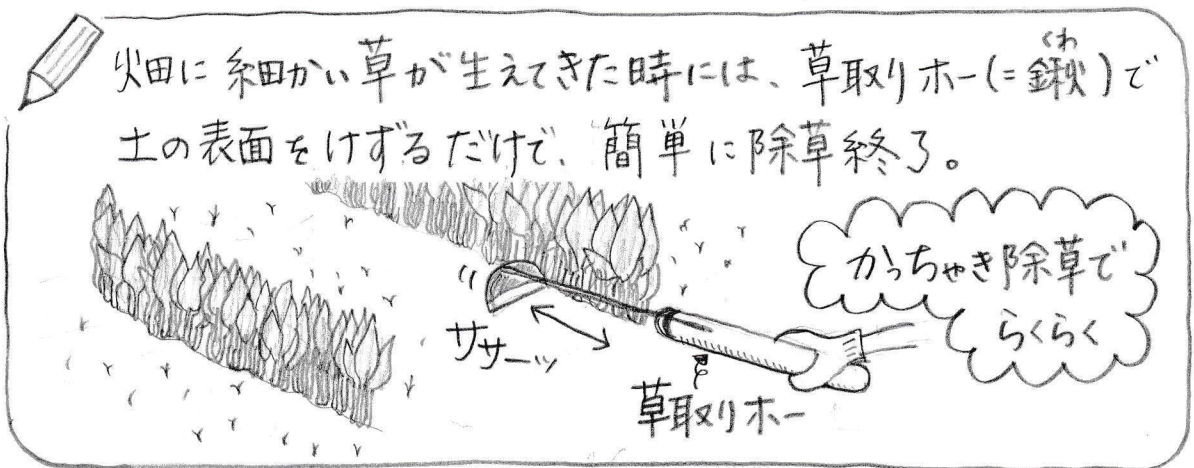 畑に細かい草が生えてきた時には、草取りホー(=鍬)で
くわ
土の表面をけずるだけで、簡単に除草終了。
かっちゃき除草で
らくらく
ササーッ
草取りホー